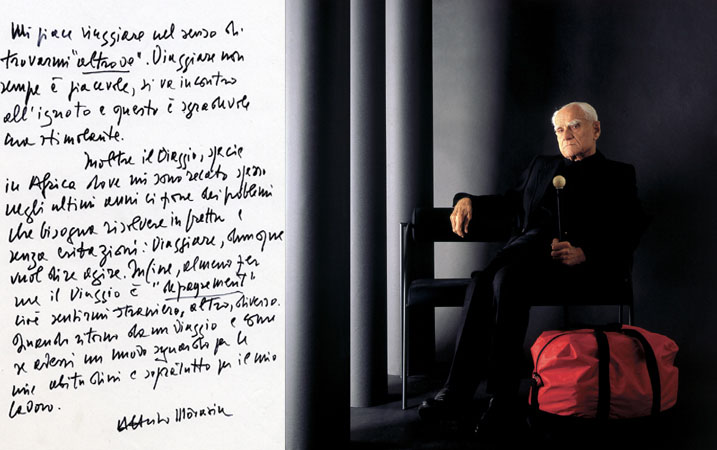 Mi piace viaggiare nel senso di
trovarmi "altrove". Viaggiare non
sempre è piacevole, si va incontro
all'ignoto e questo è sgradevole
ma stimolante.
Inoltre il Viaggio, specie
in Africa dove mi sono recato spesso
negli ultimi anni ci pone dei problemi
che bisogna risolvere in fretta e
senza esitazioni: Viaggiare, dunque
vuol dire agire. Infine, almeno per
me il Viaggio è "depaysement"
cioè sentirmi straniero, altro, diverso.
Quando ritorno da un viaggio è come
se avessi un nuovo sguardo per le
mie abitudini e sopratutto per il mio
lavoro.
Alberto Moravia